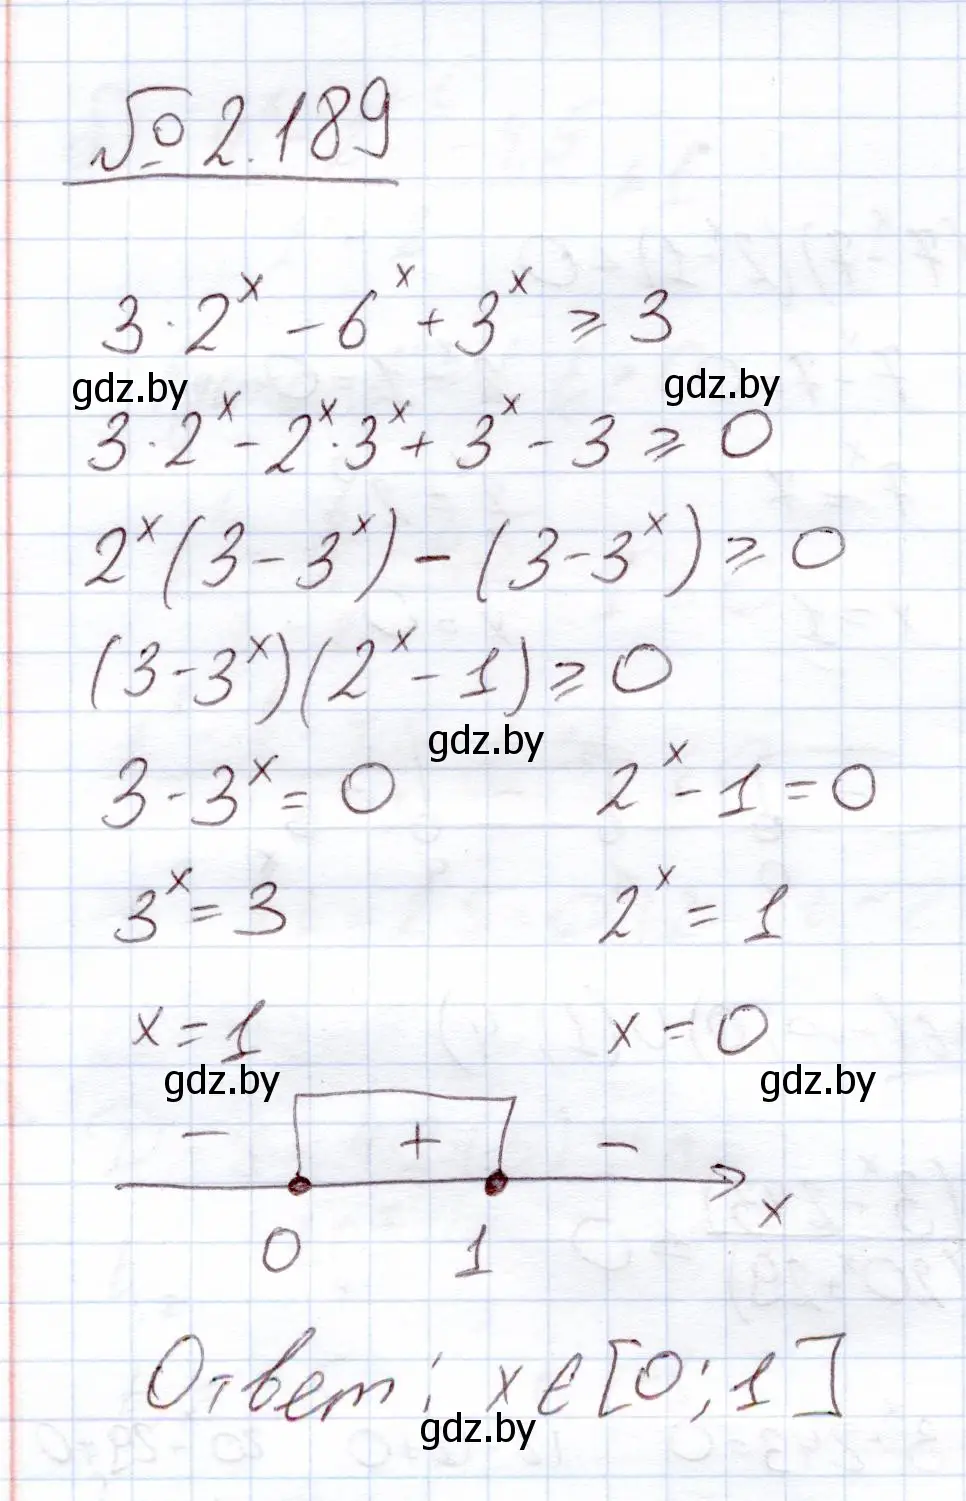 № 2.189
3 · 2^x - 6^x + 3^x ⩾ 3
gdz.by gdz.by
3 · 2^x - 2^x · 3^x + 3^x - 3 ⩾ 0
2^x (3 - 3^x) - (3 - 3^x) ⩾ 0
(3 - 3^x)(2^x - 1) ⩾ 0
gdz.by
3 - 3^x = 0 2^x - 1 = 0
3^x = 3 2^x = 1
x = 1 x = 0
gdz.by gdz.by
- + -
x
0 1
Ответ: x ∈ [0; 1]
gdz.by